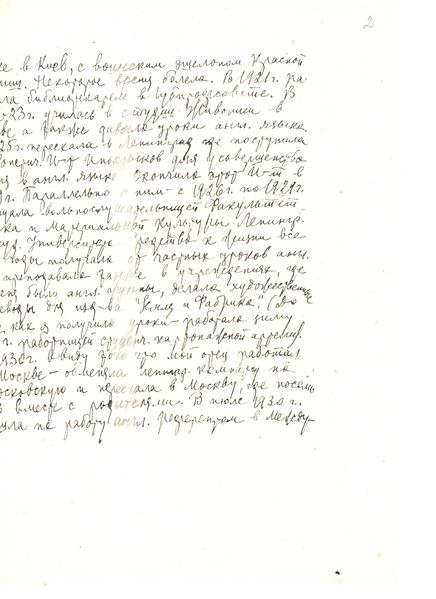 2
же в Киев, с воинским эшелоном Красной
Некоторое время болела. В 1921 г. ра
ла библиотекарем в Губпродсовете. В
-23г. училась в студии живописи в
ве а также давала уроки англ. языка.
25г. переехала в Ленинград где поступила
И-т для усовершенство
в англ. языке Окончила этот И-т в
г. Параллельно с ним - с 1926г. по 1929г.
Факультет
ка и Материальной Культуры Ленингр.
Университета средства к жизни все
годы получала от частных уроков англ.
преподавала также в учреждениях, где
были англ. группы, делала художествен
воды для из-ва "Земля и Фабрика". (До
как я получила уроки - работала зиму
г. работницей
1930г. Ввиду того что мой отец работал
Москве - обменяла ленингр. комнату на
осковскую и переехала в Москву, где посели
вместе с родителями. В июле 1930 г.
на работу англ. референтом в Между-